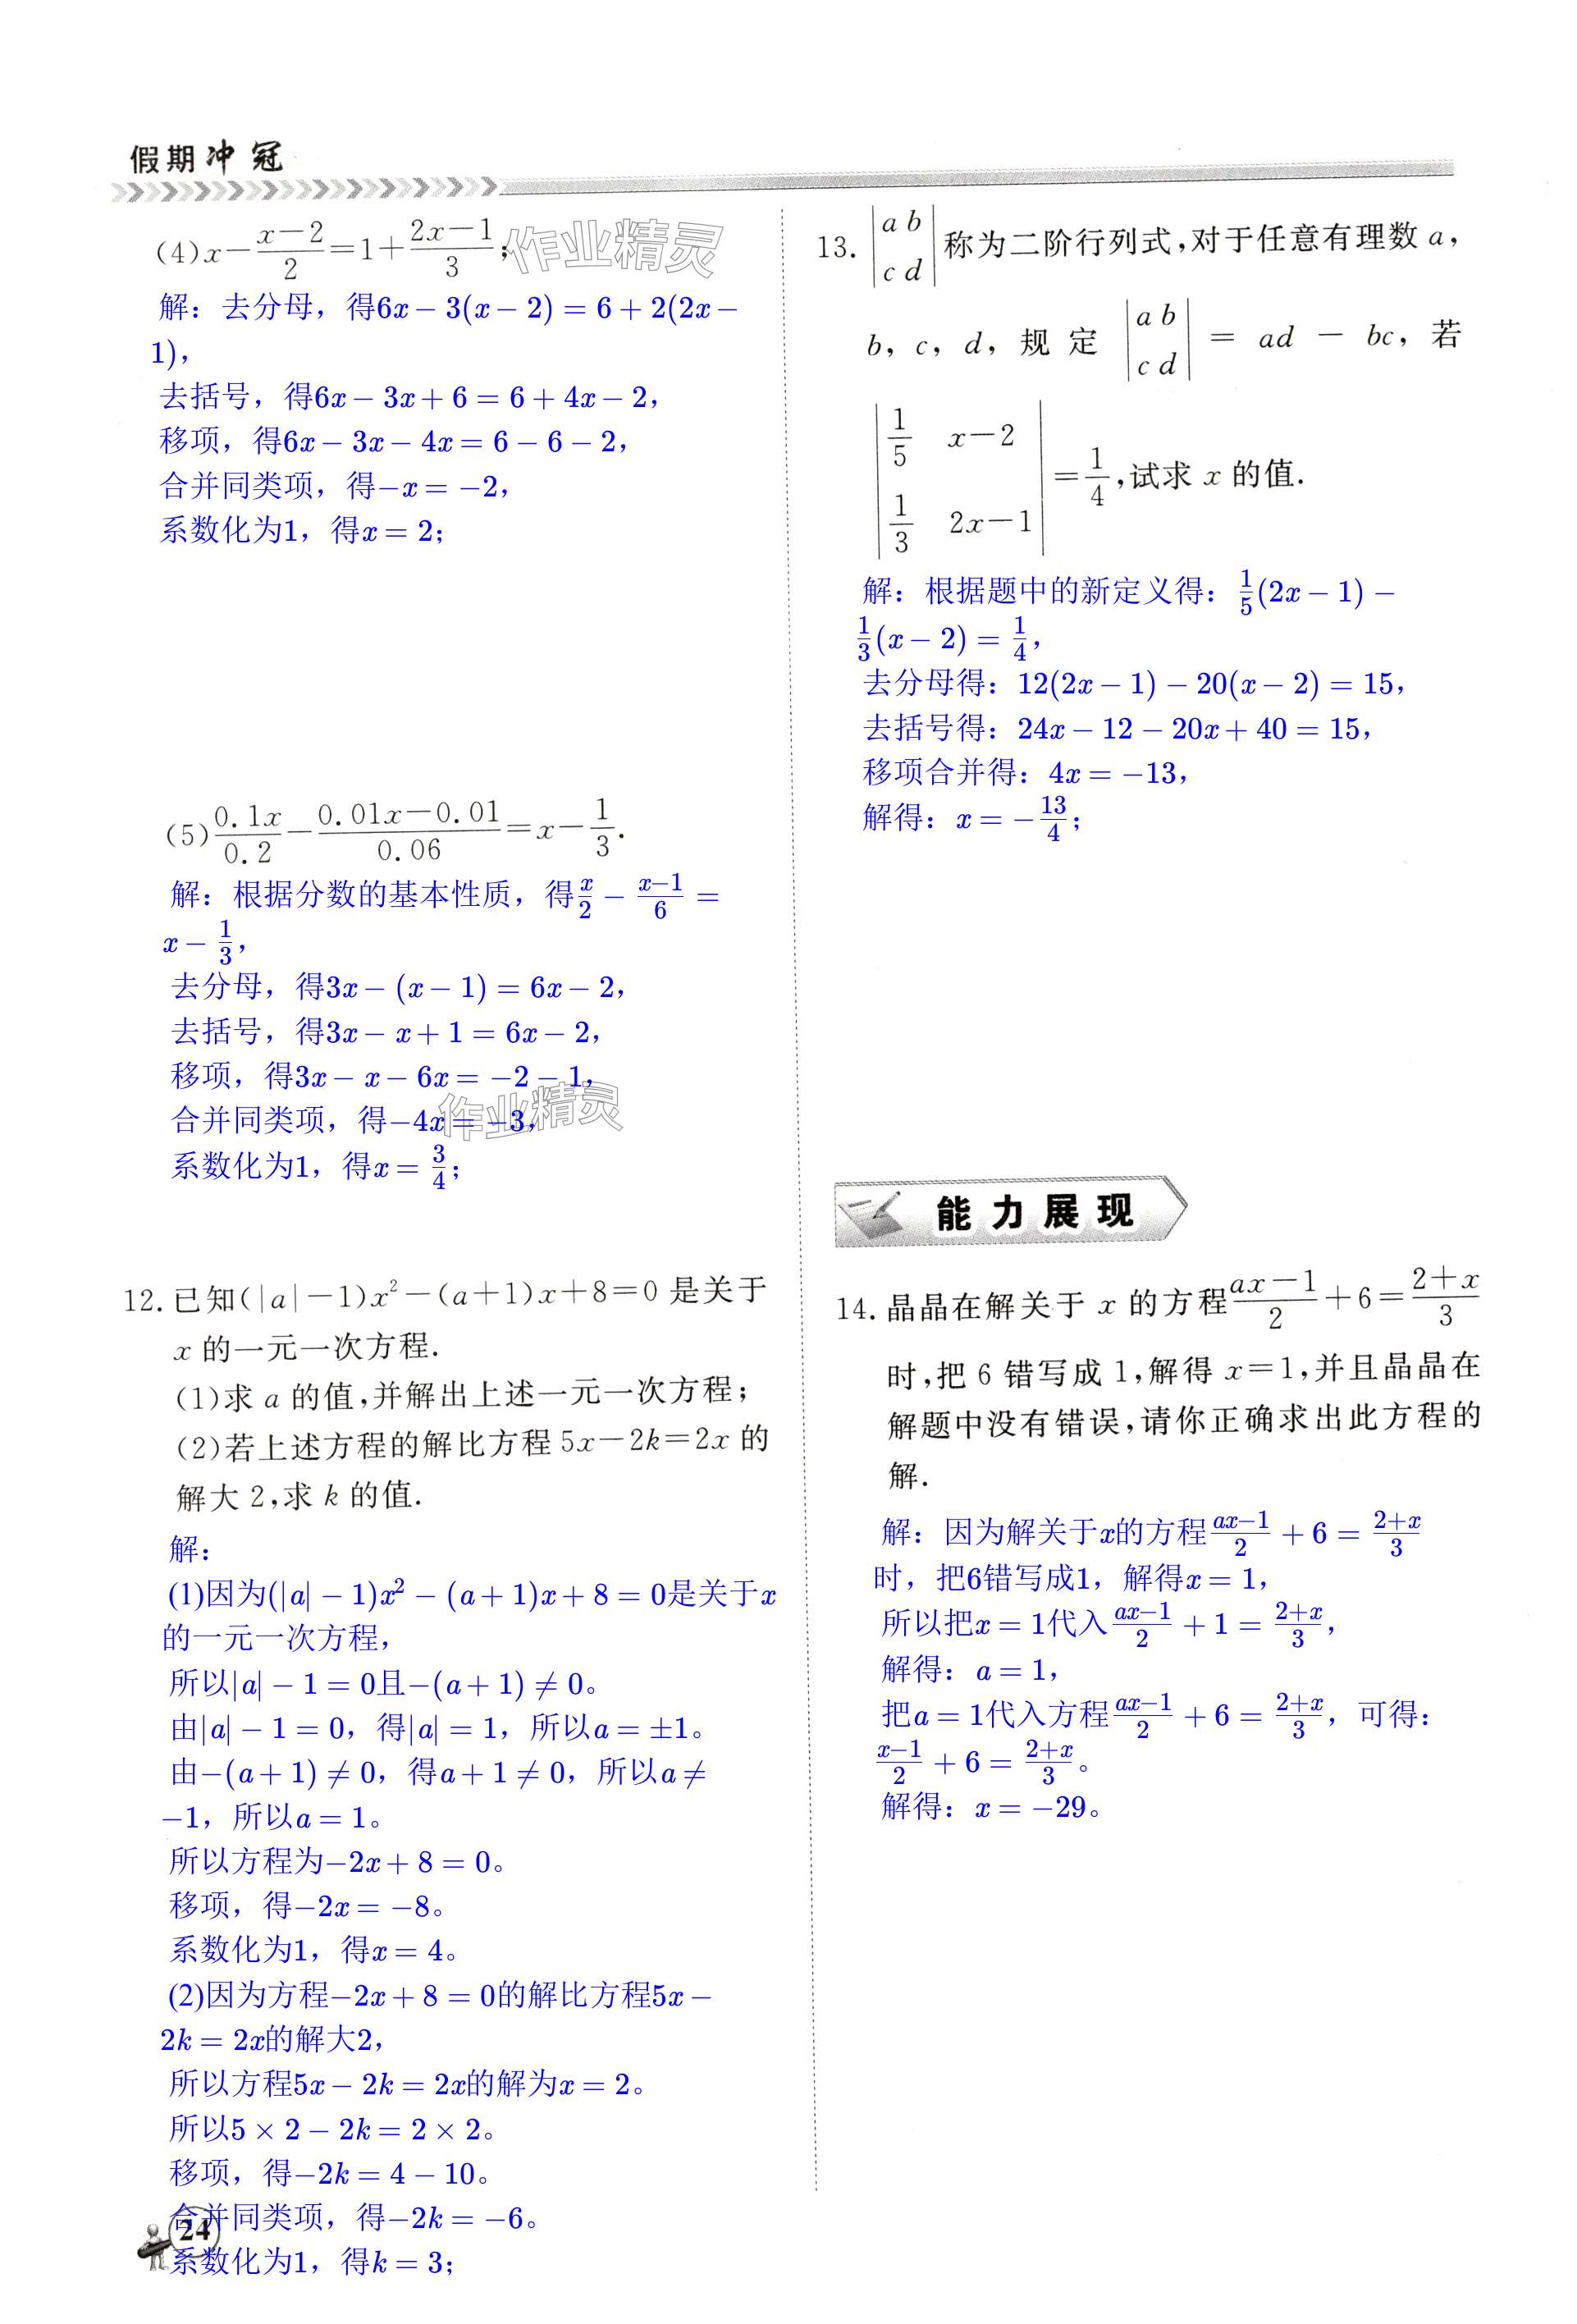 假期冲冠
(4)x−(x−2)/2=1+(2x−1)/3;
作业精灵
解：去分母，得6x − 3(x − 2) = 6 + 2(2x −
1)，
去括号，得6x − 3x + 6 = 6 + 4x − 2，
移项，得6x − 3x − 4x = 6 − 6 − 2，
合并同类项，得−x = −2，
系数化为1，得x = 2；
(5)0.1x/0.2−(0.01x−0.01)/0.06=x−1/3.
解：根据分数的基本性质，得x/2 − (x−1)/6 =
x − 1/3，
去分母，得3x − (x − 1) = 6x − 2，
去括号，得3x − x + 1 = 6x − 2，
移项，得3x − x − 6x = −2 − 1，
作业精灵
合并同类项，得−4x = −3，
系数化为1，得x = 3/4；
12.已知(|a|−1)x²−(a+1)x+8=0 是关于
x 的一元一次方程.
(1)求 a 的值,并解出上述一元一次方程;
(2)若上述方程的解比方程 5x−2k=2x 的
解大 2,求 k 的值.
解：
(1)因为(|a| − 1)x² − (a + 1)x + 8 = 0是关于x
的一元一次方程，
所以|a| − 1 = 0且−(a + 1) ≠ 0。
由|a| − 1 = 0，得|a| = 1，所以a = ±1。
由−(a + 1) ≠ 0，得a + 1 ≠ 0，所以a ≠
−1，所以a = 1。
所以方程为−2x + 8 = 0。
移项，得−2x = −8。
系数化为1，得x = 4。
(2)因为方程−2x + 8 = 0的解比方程5x −
2k = 2x的解大2，
所以方程5x − 2k = 2x的解为x = 2。
所以5 × 2 − 2k = 2 × 2。
移项，得−2k = 4 − 10。
合并同类项，得−2k = −6。
24
系数化为1，得k = 3；
13. |a b; c d| 称为二阶行列式,对于任意有理数 a,
b, c, d, 规 定 |a b; c d| = ad − bc, 若
|1/5 x−2; 1/3 2x−1| =1/4,试求 x 的值.
解：根据题中的新定义得：1/5(2x − 1) −
1/3(x − 2) = 1/4，
去分母得：12(2x − 1) − 20(x − 2) = 15，
去括号得：24x − 12 − 20x + 40 = 15，
移项合并得：4x = −13，
解得：x = −13/4；
能力展现
14.晶晶在解关于 x 的方程(ax−1)/2+6=(2+x)/3
时,把 6 错写成 1,解得 x=1,并且晶晶在
解题中没有错误,请你正确求出此方程的
解.
解：因为解关于x的方程(ax−1)/2 + 6 = (2+x)/3
时，把6错写成1，解得x = 1，
所以把x = 1代入(ax−1)/2 + 1 = (2+x)/3，
解得：a = 1，
把a = 1代入方程(ax−1)/2 + 6 = (2+x)/3，可得：
(x−1)/2 + 6 = (2+x)/3。
解得：x = −29。